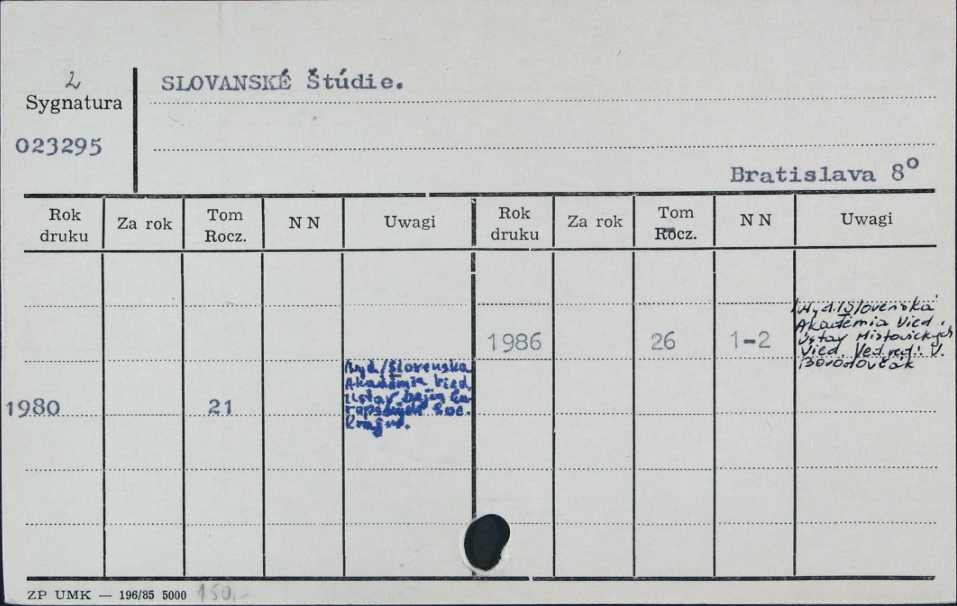 2
Sygnatura
023295
SLOVANSKÉ Štúdie.
Bratislava 8º
Rok druku
Za rok
Tom Rocz.
N N
Uwagi
Rok druku
Za rok
Tom Rocz.
N N
Uwagi
1980
21
Slovenská
Akadémia Vied
Ústav dejín
soc.
1986
26
1-2
Wyd. Slovenská
Akadémia Vied.
Ústav Historických
Vied. Ved. red.: V.
Borodovčák
ZP UMK — 196/85 5000
150.-